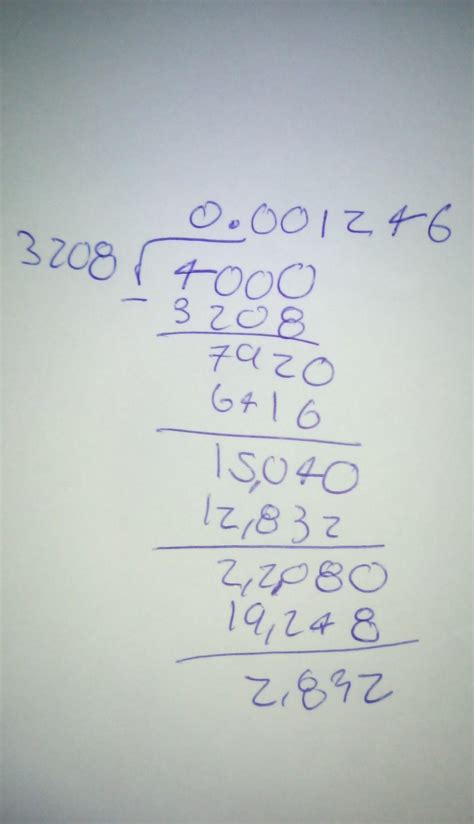 0.001246
3208 4000
- 3208
7920
6416
15,040
12,832
2,2,080
19,248
2,832